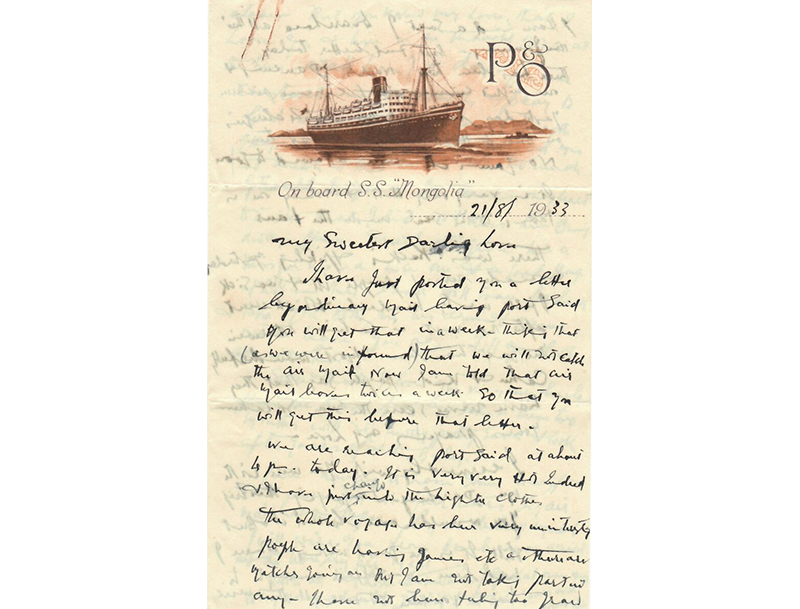 P&O
On board S.S. "Mongolia"
21/8/ 1933
My Sweetest Darling Love
I have Just posted you a letter
by ordinary Mail leaving port Said
you will get that in a week - thinking that
(as we were informed) that we will not catch
the air Mail Now I am told that air
Mail leaves twice a week So that you
will get this before that letter -
we are reaching port Said at about
4 p.m. today. It is very very Hot Indeed
& I have just changed into the lighter clothes
The whole voyage has been very uninteresting
people are having games etc and there are
matches going on But I am not taking part in
any - I have not been feeling too